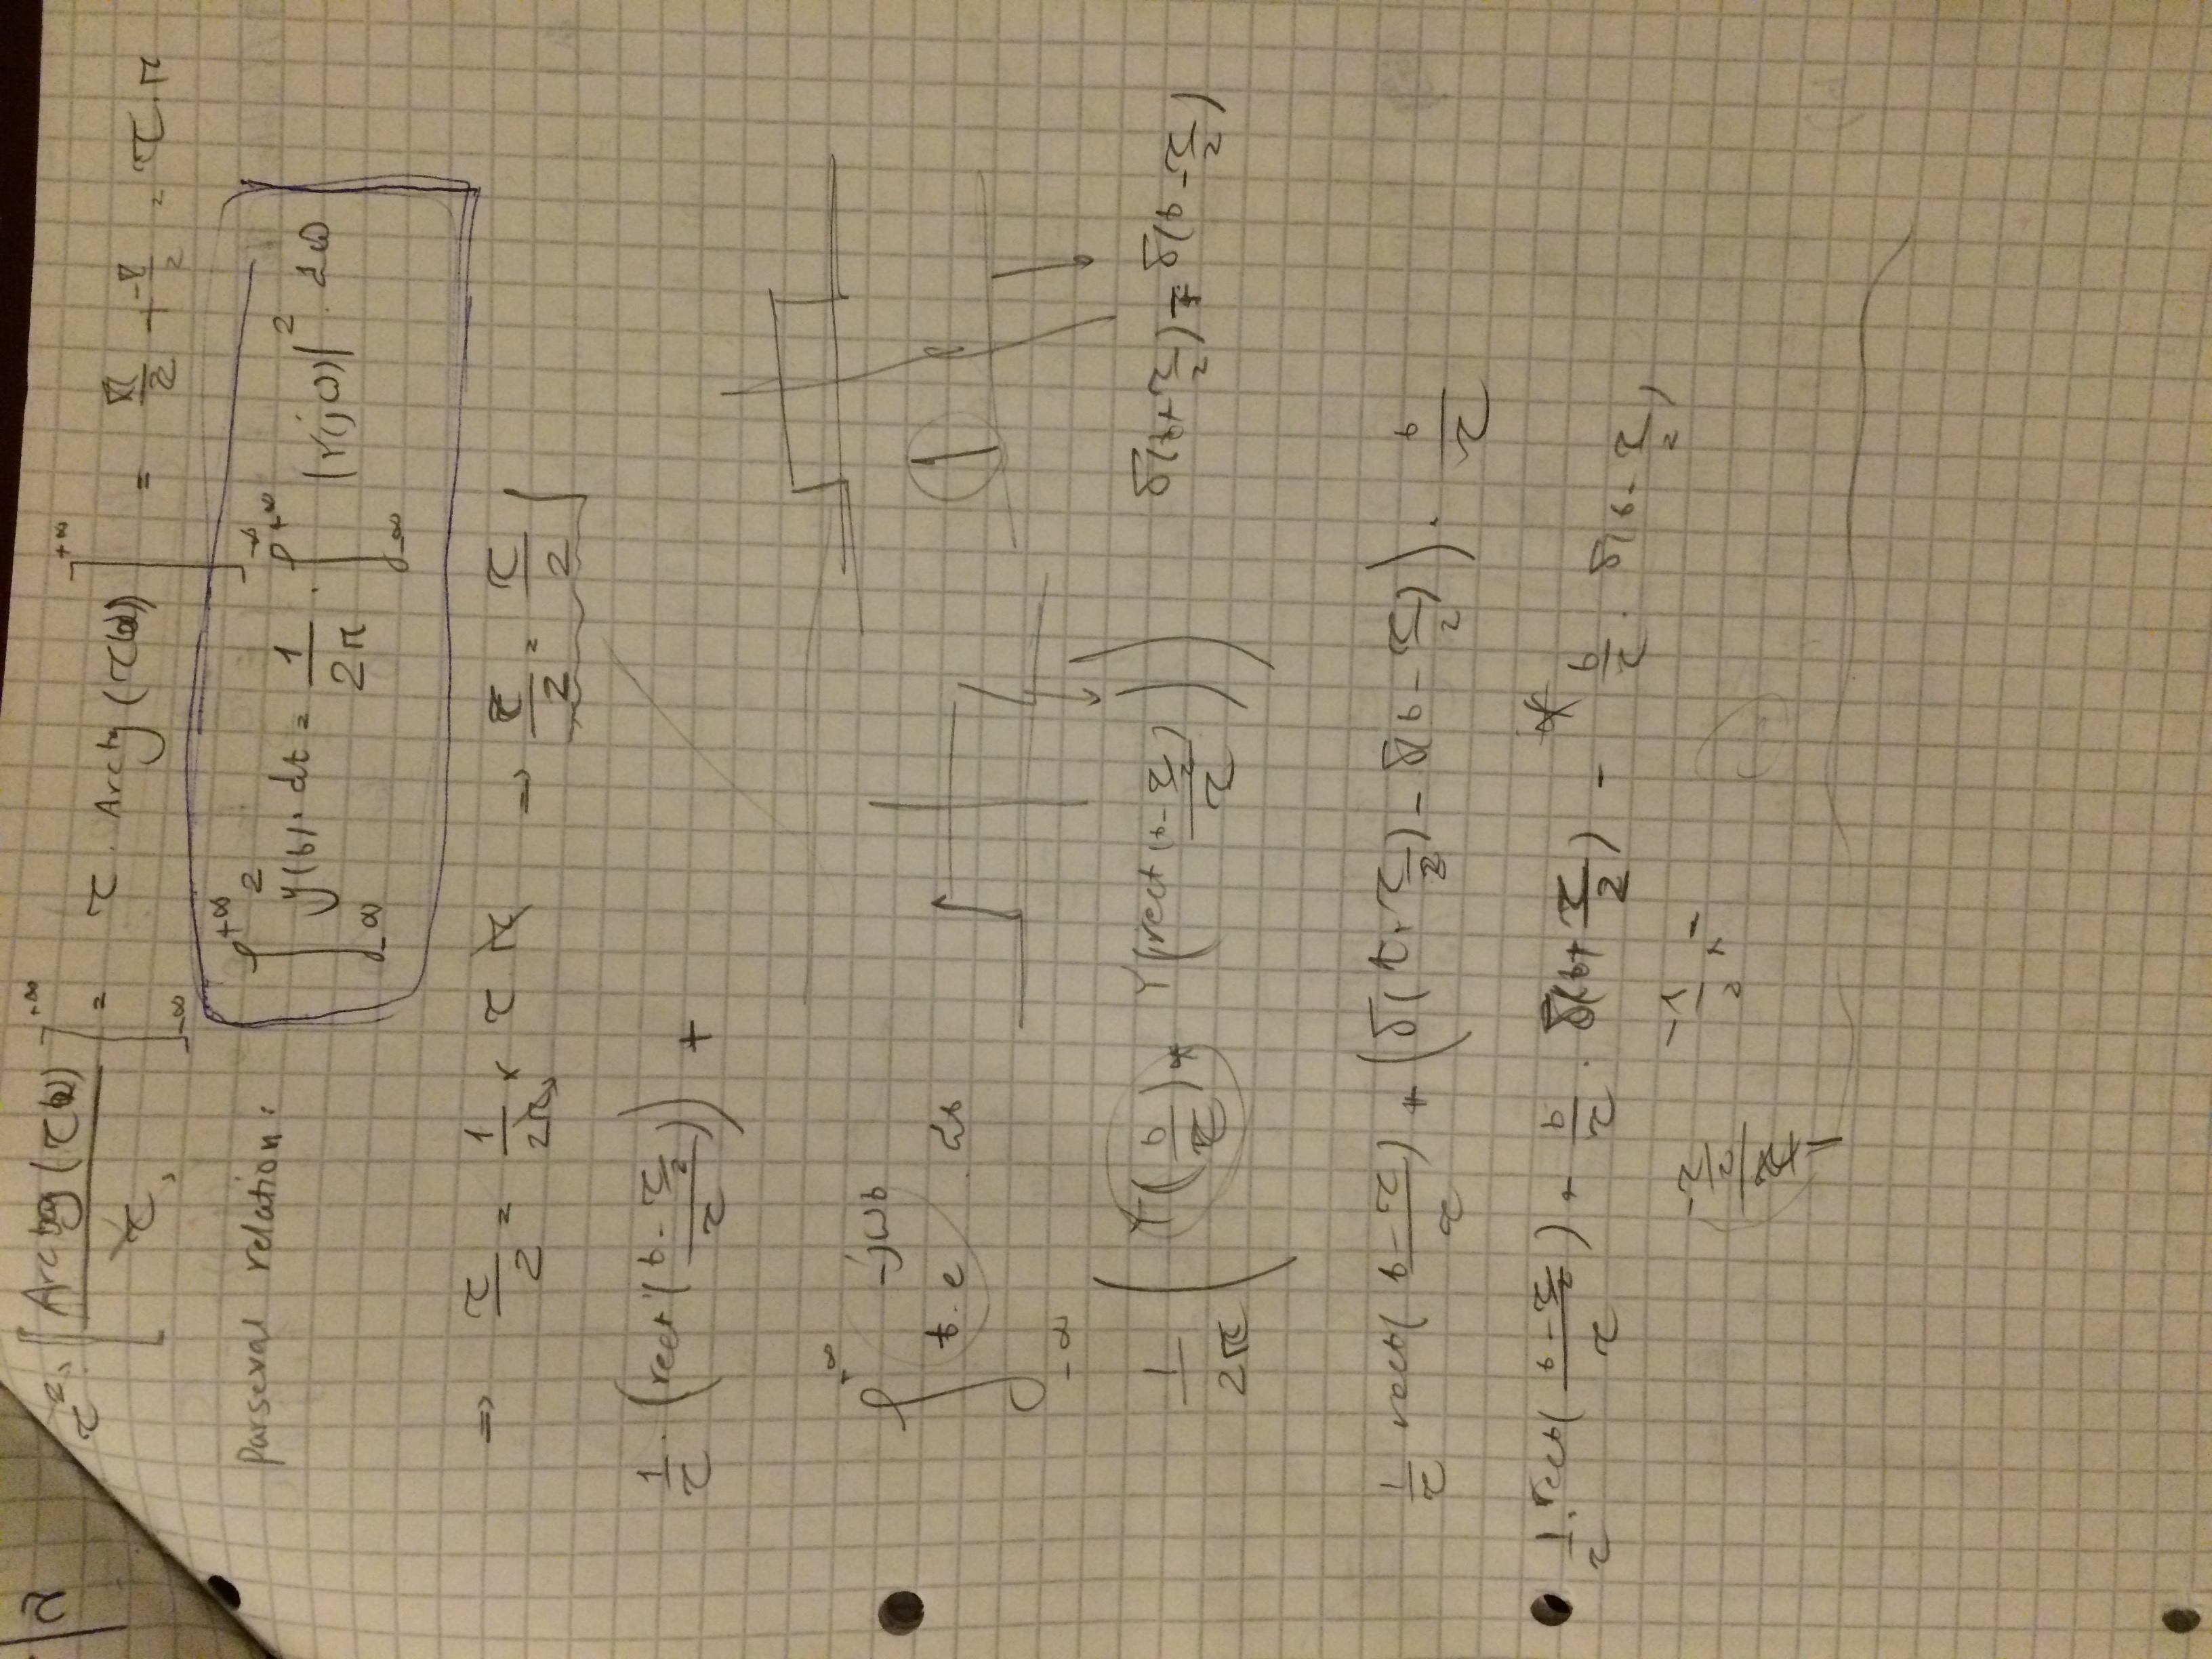 τ². [Arctg(τω) / τ]_{-∞}^{+∞} = τ. Arctg(τω)]_{-∞}^{+∞} = π/2 + -π/2 = τ.π
Parseval relation: ∫_{-∞}^{+∞} y²(t). dt = 1/2π . ∫_{-∞}^{+∞} |Y(jω)|². dω
=> τ/2 = 1/2π × τ π => τ/2 = τ/2
1/τ . (rect((t - τ/2)/τ)) +
∫_{-∞}^{+∞} t. e^{-jωt} . dt
1/2π (Y(t/τ) * Y(rect((t - τ/2)/τ))) δ(t + τ/2) - δ(t - τ/2)
1/τ rect((t - τ)/τ) + (δ(t + τ/2) - δ(t - τ/2)) . t/τ
1/τ . rect((t - τ/2)/τ) + t/τ . δ(t + τ/2) - t/τ . δ(t - τ/2)